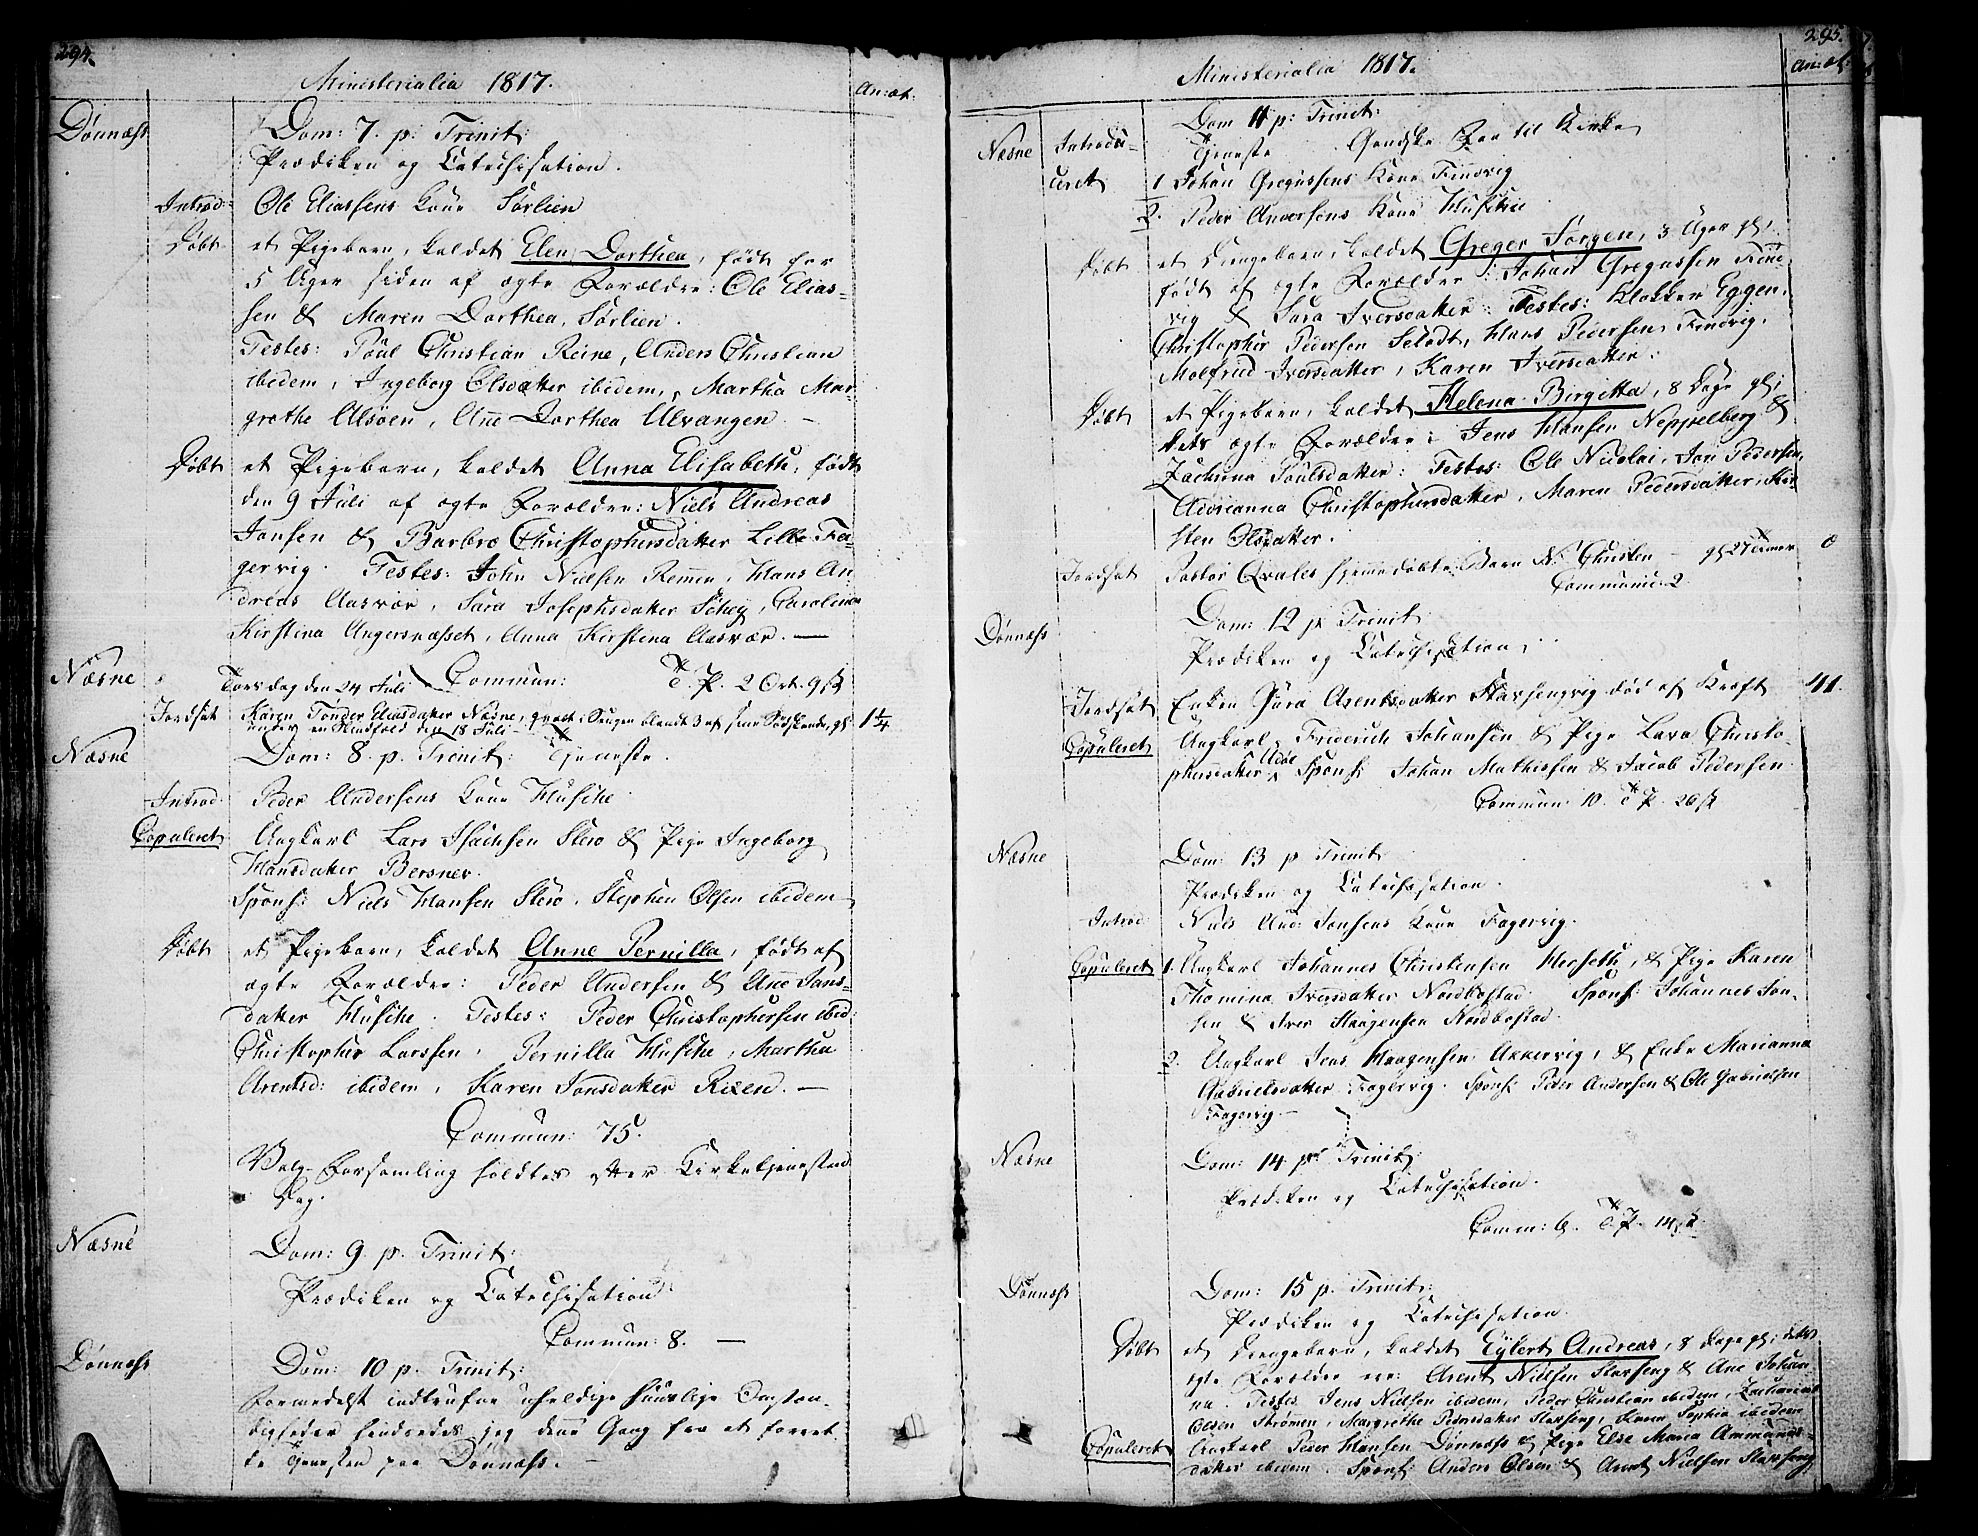 294.
Ministerialia 1817.
An: æt.
Dønnæss
Dom: 7. p. Trinit:
Prædiken og Catechisation.
Introd: Ole Eliassens Kone Sørlien
Døbt et Pigebarn, kaldet Elen Dorthea, født for
5 Uger siden af ægte Forældre: Ole Elias-
sen & Maren Dorthea, Sørlien.
Testes: Poul Christian Reine, Anders Christian
ibidem, Ingeborg Olsdatter ibidem, Martha Mar-
grethe Alsøen, Ane Dorthea Ulvangen. —
Døbt et Pigebarn, kaldet Anna Elisabeth, født
den 9 Juli af ægte Forældre: Niels Andreas
Jonsen & Barbro Christophersdatter Lille Fa-
gervig. Testes: John Nielsen Remmen, Hans An
dreas Aasvær, Sara Josephsdatter Schey, Carolina
Kirstina Angersnæsset, Anna Kirstina Aasvær. —
Næsne
Torsdag den 24 Juli Commun: T. P. 2 Ort. 9 ß
Jordfæst Karen Tonder Eliasdatter Næsne, qvalt i Sengen blandt 3 af sine Sødskende, gl: 1 1/4
den 18 Juli
Næsne
Dom: 8. p. Trinit: Tjeneste.
Introd. Peder Andersens Kone Husche.
Copuleret Ungkarl Lars Isachsen Sterø & Pige Ingeborg
Hansdatter Bersnev.
Spons: Niels Hansen Sterø, Stephen Olsen ibidem
Døbt et Pigebarn, kaldet Anne Pernilla, født af
ægte Forældre: Peder Andersen & Ane Jans-
datter Husche. Testes: Peder Christophersen ibid:
Christopher Larssen, Pernilla Husche, Martha
Arentsd: ibidem, Karen Jonsdatter Risen. —
Commun: 75.
Valg-Forsamling holdtes efter Kirketjenesten d:
Dag.
Næsne
Dom: 9. p. Trinit:
Prædiken og Catechisation.
Commun: 8. —
Dønnæss
Dom: 10 p. Trinit:
Formedelst indtrufne uheldige huuslige Omstæn-
digheder hindredes jeg denne Gang fra at forret-
te Tjenesten paa Dønnæss. —
295.
Ministerialia 1817.
An: æt.
Næsne
Dom 11 p: Trinit:
Tjeneste
Introdu-
ceret 1 Johan Gregussens Kone Finnvig
2. Peder Andersens Kone Husche
Døbt et Drengebarn, kaldet Greger Jørgen, 3 Uger gl:,
født af ægte Forældre: Johan Gregussen Finn-
vig & Sara Iversdatter: Testes: Klokker Eggen.
Christopher Pedersen Selodt, Hans Pedersen Finnvig.
Molfrid Iversdatter, Karen Iversdatter.
Døbt et Pigebarn, kaldet Helena Birgitta, 8 Dage gl;
dets ægte Forældre: Jens Hansen Neppelberg &
Zachrina Poulsdatter: Testes: Ole Nicolai, Jon Pedersen,
Adrianna Christophersdatter, Maren Pedersdatter, Kir-
sten Olsdatter.
Jordfæst Pastor Qvales hjemmedøbte Barn N: Christen — gl: 27 Timer 0
Communic: 2
Dønnæss
Dom: 12 p Trinit:
Prædiken og Catechisation,
Jordfæst Enken Sara Arentsdatter Slapsengvig død af Kræft 41.
Copuleret Ungkarl Friderich Johansen & Pige Lava Christo-
phersdatter Uldøe Spons: Johan Mathissen & Jacob Pedersen
Commun: 10. T. P. 26 ß
Næsne
Dom: 13 p Trinit
Prædiken og Catechisation.
Introd: Niels And: Jonsens Kone Fagervig.
Copuleret 1. Ungkarl Johannes Christensen Herseth, & Pige Karen
Thomina Iversdatter Nordbostad. Spons: Johannes Jon-
sen & Iver Haagensen Nordbostad.
2. Ungkarl Jens Haagensen Akkervig, & Enke Marianna
Gabrielsdatter Fagervig. Spons: Peder Andersen & Ole Gabrielsen
Fagervig —
Næsne
Dom: 14. p. Trinit:
Prædiken og Catechisation.
Comm: 6. T. P. 14 ß
Dønnæss
Dom: 15 p. Trinit:
Prædiken og Catechisation.
Døbt et Drengebarn, kaldet Eylert Andreas, 8 Dage gl; dets
ægte Forældre ere: Arent Nielsen Slapseng & Ane Johan-
na. Testes Jens Nielsen ibidem, Peder Christian ibidem, Zacharias
Olsen Strømen, Margrethe Pedersdatter Slapseng, Anna Sophia ibidem
Copuleret Ungkarl Peder Hansen Dønnæss & Pige Else Maria Ammunds-
datter ibidem. Spons: Anders Olsen & Arent Nielsen Slapseng